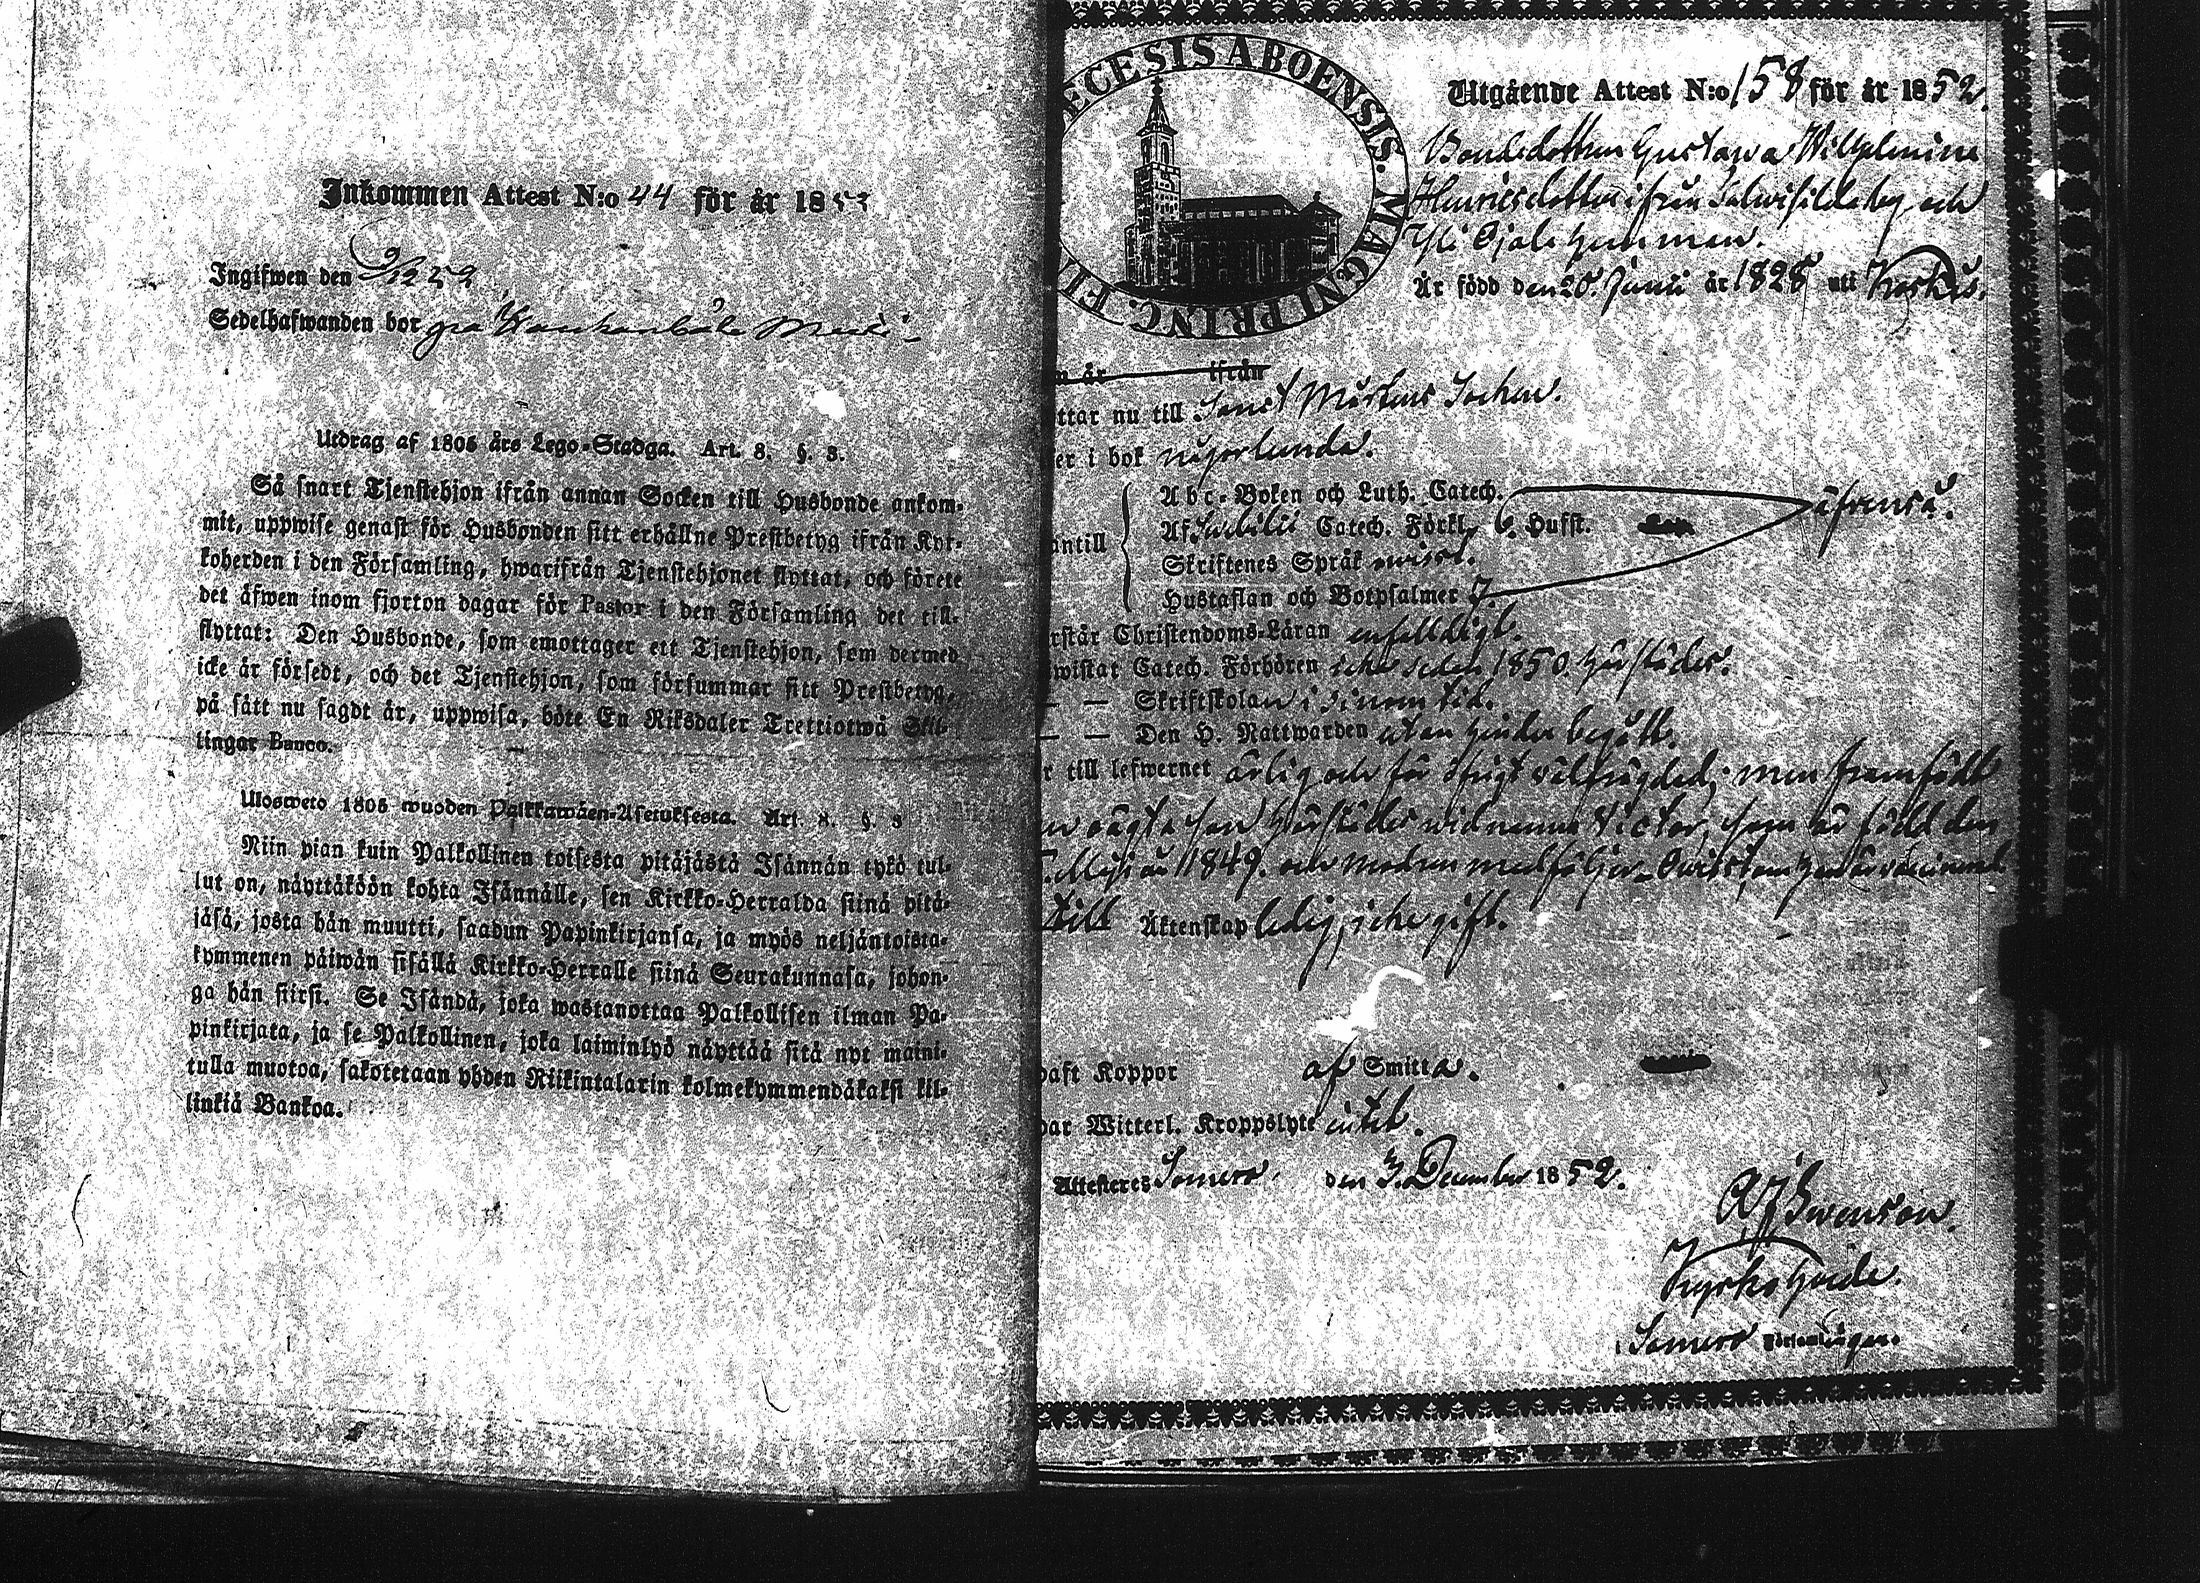 Inkommen Attest N:o 44 för år 1853
Ingifwen den
Sedelhafwanden bor på
Utdrag af 1805 års Lego-Stadga. Art. 8. §. 3.
Så snart Tjenstehjon ifrån annan Socken till Husbonde ankom-
mit, uppwise genast för Husbonden sitt erhållne Prestbetyg ifrån Kyr-
koherden i den Församling, hwarifrån Tjenstehjonet flyttat, och förete
det äfwen inom fjorton dagar för Pastor i den Församling det till-
flyttat: Den Husbonde, som emottager ett Tjenstehjon, som dermed
icke är försedt, och det Tjenstehjon, som försummar sitt Prestbetyg,
på sätt nu sagdt är, uppwisa, böte En Riksdaler Trettiotwå Skil-
lingar Banco.
Ulosweto 1805 wuoden Palkkawäen-Asetuksesta. Art. 8. §. 3
Niin pian kuin Palkollinen toisesta pitäjästä Isännän tykö tul-
lut on, näyttäköön kohta Isännälle, sen Kirkko-Herralda siinä pitä-
jäsä, josta hän muutti, saadun Papinkirjansa, ja myös neljäntoista-
kymmenen päiwän sisällä Kirkko-Herralle siinä Seurakunnasa, johon-
ga hän siirsi. Se Isändä, joka wastanottaa Palkollisen ilman Pa-
pinkirjata, ja se Palkollinen, joka laiminlyö näyttää sitä nyt maini-
tulla muotoa, sakotetaan yhden Riikintalarin kolmekymmendäkaksi kil-
linkiä Bankoa.
ECESIS ABOENSIS. MAGNI PRINC. FI
Utgående Attest N:o 158 för år 1852.
Bondedottren Gustawa Wilhelmina
Henricsdotter ifrån by och
hemman.
Är född den 20. Junii år 1828 uti Koskis.
n år ifrån
ttar nu till Sanct Mårtens Socken.
er i bok någorlunda.
Abc-Boken och Luth. Catech.
Af Catech. Förkl. 6. Hufst. äfrenså.
antill Skriftenes Språk
Hustaflan och Botpsalmer 7.
rstår Christendoms-Läran enfaldigt.
wistat Catech. Förhören icke sedan 1850. härstädes.
— — Skriftskolan i sinom tid.
— — Den H. Nattwarden utan hinder begått.
r till lefwernet ärlig och för öfrigt välfrägdad; men framfödt
en oägta son härstädes vid namn Victor, som är född den
Maji år 1849. och modren medföljer.
till Äktenskap ledig, icke gift.
haft Koppor af Smitta.
har Witterl. Kroppslyte intet.
Attesteres Somero, den 3. December 1852.
Swenson.
Kyrkoherde.
i Somero Församlingen.